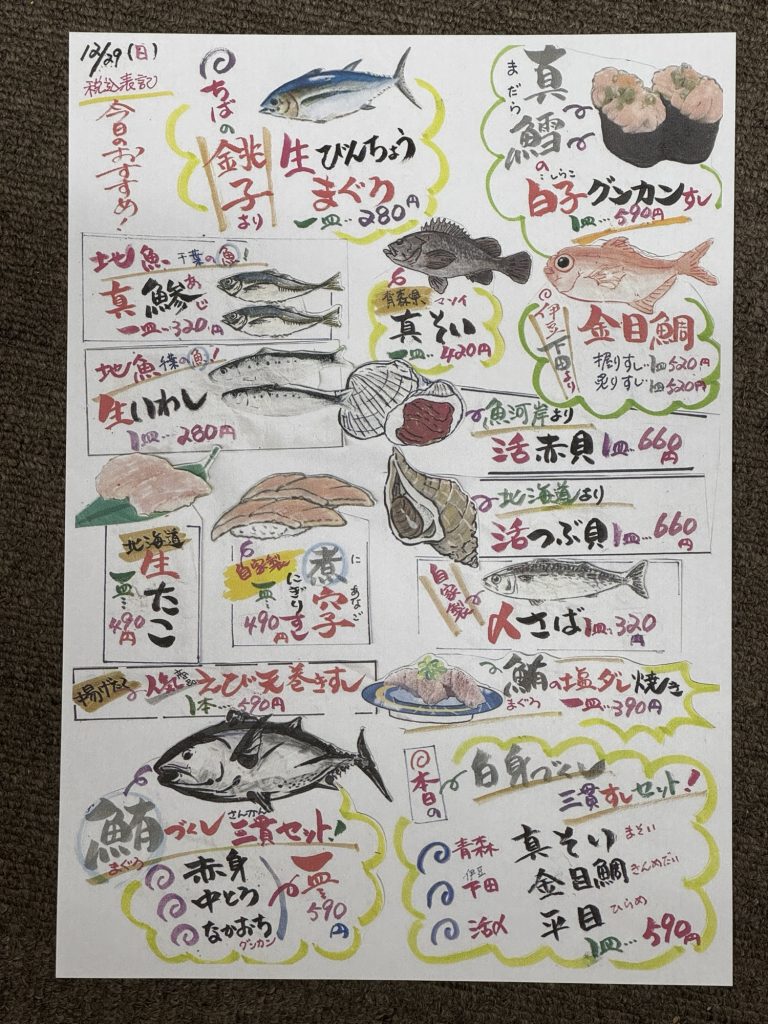 12/29(日)
税込表記
今日のおすすめ!
ちばの
銚子
より
生びんちょう
まぐろ
一皿…280円
真鱈の
まだら
しらこ
白子グンカンすし
1皿…590円
地魚 千葉の魚!
真鯵
あじ
一皿…320円
青森県 マソイ
真そい
一皿…420円
伊豆
下田
より
金目鯛
握りすし 1皿520円
炙りすし 1皿520円
地魚 千葉の魚!
生いわし
1皿…280円
魚河岸より
活赤貝 1皿…660円
北海道より
活つぶ貝 1皿…660円
北海道
生たこ
一皿…490円
自家製
煮穴子
にあなご
にぎりすし
一皿…490円
自家製
〆さば 1皿…320円
揚げたて
人気商品
えび天巻きすし
1本…590円
鮪の塩ダレ焼き
まぐろ
一皿…390円
鮪づくし三貫セット!
まぐろ
さんかん
赤身
中とろ
なかおち
グンカン
一皿…590円
本日の
白身づくし
三貫すしセット!
青森 真そい まそい
伊豆
下田 金目鯛 きんめだい
活〆 平目 ひらめ
1皿…590円